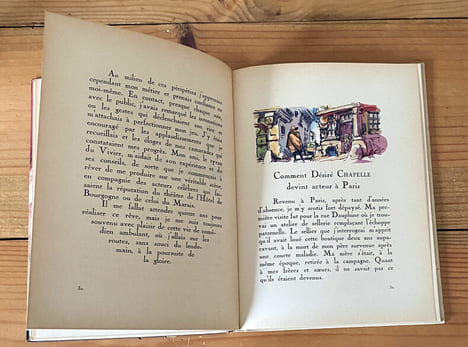 Au milieu de ces péripéties j'apprenais
cependant mon métier et prenais confiance en
moi-même. En contact, presque chaque soir,
avec le public, j'avais remarqué les intonations
ou les gestes qui déclenchaient le rire et
m'attachais à perfectionner mon jeu. J'y étais
encouragé par les applaudissements que je
recueillais et les éloges de mes camarades qui
constataient mes progrès. Mon ami, le
du Vivier, m'aidait de son expérience et de
ses conseils, de sorte que je commençais à
rêver de me produire sur une véritable scène,
en compagnie des acteurs célèbres qui fai-
saient la réputation du théâtre de l'Hôtel de
Bourgogne ou de celui du Marais.
Il me fallut attendre quinze ans pour
réaliser ce rêve, mais je me suis toujours
souvenu avec plaisir de cette vie de comé-
dien ambulant, où j'allais sur les
routes, sans souci du lende-
main, à la poursuite de
la gloire.
Comment Désiré CHAPELLE
devint acteur à Paris
Revenu à Paris, après tant d'années
d'absence, je m'y sentis fort dépaysé. Ma pre-
mière visite fut pour la rue Dauphine où je trou-
vai un atelier de sellerie remplaçant l'échoppe
paternelle. Le sellier que j'interrogeai m'apprit
qu'il avait loué cette boutique deux ans aupa-
ravant, à la mort de mon père survenue après
une courte maladie. Ma mère s'était, à la
même époque, retirée à la campagne. Quant
à mes frères et sœurs, il ne savait pas ce
qu'ils étaient devenus.